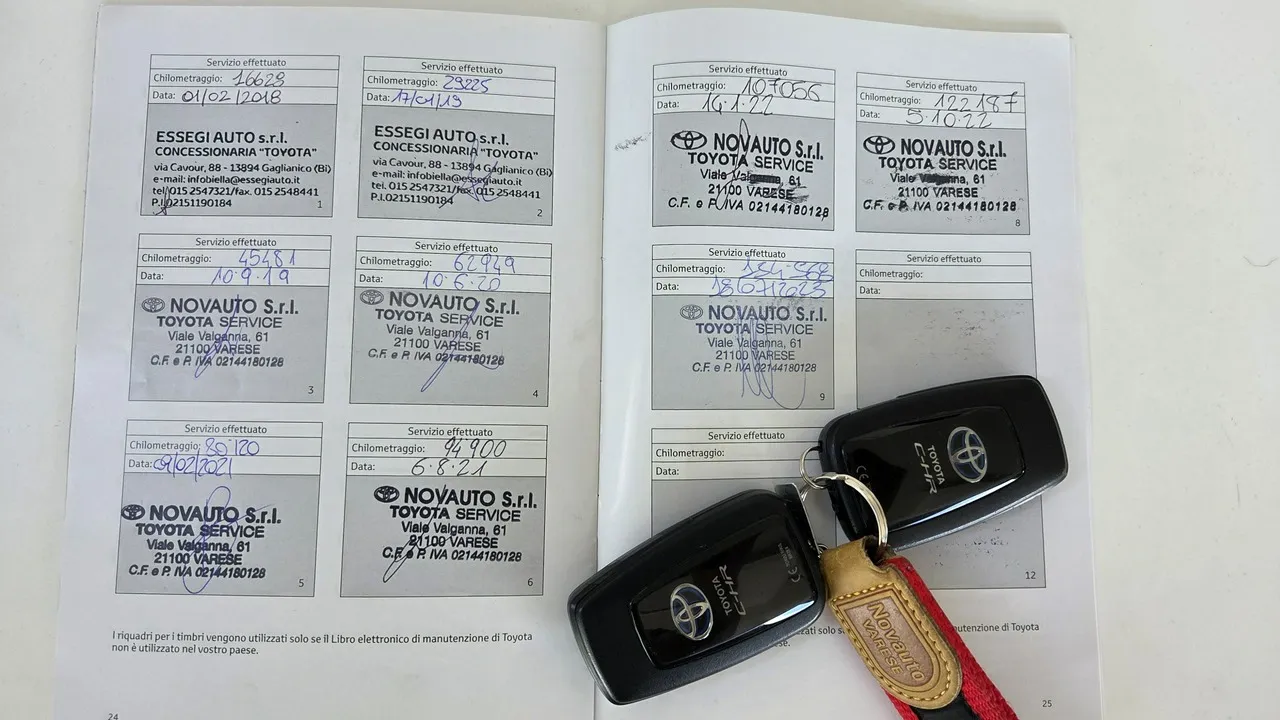 Servizio effettuato
Chilometraggio: 16628
Data: 01/02/2018
ESSEGI AUTO s.r.l.
CONCESSIONARIA "TOYOTA"
via Cavour, 88 - 13894 Gaglianico (Bi)
e-mail: infobiella@essegiauto.it
tel. 015 2547321/fax. 015 2548441
P.I.02151190184
1
Servizio effettuato
Chilometraggio: 29225
Data: 17/01/19
ESSEGI AUTO s.r.l.
CONCESSIONARIA "TOYOTA"
via Cavour, 88 - 13894 Gaglianico (Bi)
e-mail: infobiella@essegiauto.it
tel. 015 2547321/fax. 015 2548441
P.I.02151190184
2
Servizio effettuato
Chilometraggio: 45481
Data: 10.9.19
NOVAUTO S.r.l.
TOYOTA SERVICE
Viale Valganna, 61
21100 VARESE
C.F. e P. IVA 02144180128
3
Servizio effettuato
Chilometraggio: 62949
Data: 10.6.20
NOVAUTO S.r.l.
TOYOTA SERVICE
Viale Valganna, 61
21100 VARESE
C.F. e P. IVA 02144180128
4
Servizio effettuato
Chilometraggio: 80120
Data: 09/02/2021
NOVAUTO S.r.l.
TOYOTA SERVICE
Viale Valganna, 61
21100 VARESE
C.F. e P. IVA 02144180128
5
Servizio effettuato
Chilometraggio: 94900
Data: 6.8.21
NOVAUTO S.r.l.
TOYOTA SERVICE
Viale Valganna, 61
21100 VARESE
C.F. e P. IVA 02144180128
6
I riquadri per i timbri vengono utilizzati solo se il Libro elettronico di manutenzione di Toyota
non è utilizzato nel vostro paese.
24
Servizio effettuato
Chilometraggio: 107056
Data: 14.1.22
NOVAUTO S.r.l.
TOYOTA SERVICE
Viale Valganna, 61
21100 VARESE
C.F. e P. IVA 02144180128
Servizio effettuato
Chilometraggio: 122187
Data: 5.10.22
NOVAUTO S.r.l.
TOYOTA SERVICE
Viale 61
21100 VARESE
C.F. e P. IVA 02144180128
8
Servizio effettuato
Chilometraggio:
Data: 18/07/2023
NOVAUTO S.r.l.
TOYOTA SERVICE
Viale Valganna, 61
21100 VARESE
C.F. e P. IVA 02144180128
9
Servizio effettuato
Chilometraggio:
Data:
Servizio effettuato
Chilometraggio:
Data:
12
solo
manutenzione di Toyota
25
TOYOTA
C-HR
TOYOTA
C-HR
Novauto
VARESE